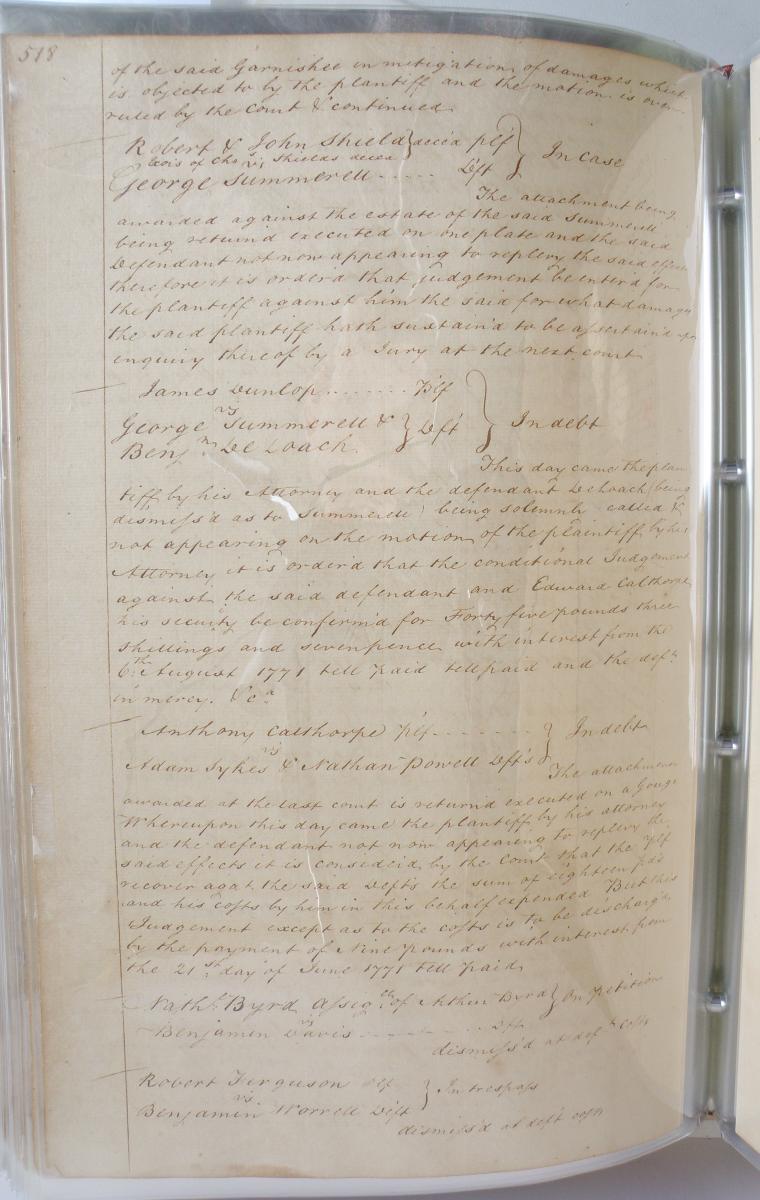 518
of the said Garnishee in mitigation of damages which
is objected to by the plantiff and the motion is over
ruled by the Court & continued
Robert & John Shield } dece'd plf } In Case
Exors of Chs Shields decea
vs
George Summerell ..... Deft
The attachment being
awarded against the estate of the said Summerell
being return'd executed on one plate and the said
Defendant not now appearing to replevy the said effects
therefore it is order'd that Judgement be enter'd for
the plantiff against him the said for what damages
the said plantiff hath sustain'd to be assertain'd upon
enquiry thereof by a Jury at the next court
James Dunlop ........ Plf } In debt
vs
George Summerell & } Deft
Benjm. DeLoach
This day came the plan
tiff by his Attorney and the defendant DeLoach (being
dismiss'd as to Summerell) being solemnly called &
not appearing on the motion of the plaintiff by his
Attorney it is order'd that the conditional Judgement
against the said defendant and Edward Calthorpe
his secuity be confirm'd for Forty five pounds three
shillings and sevenpence with interest from the
6th. August 1771 till paid tell paid and the deft.
in mercy. &ca.
Anthony Calthorpe plf ....... } In debt
vs
Adam Sykes & Nathan Powell Deft's
The attachment
awarded at the last court is return'd executed on a Gouge
Whereupon this day came the plantiff by his attorney
and the defendant not now appearing to replevy the
said effects it is conseder'd by the Court that the Plf
recover agat. the said Defts the sum of eighteen pds
and his costs by him in this behalf expended But this
Judgement except as to the costs is to be discharg'd
by the payment of Nine pounds with interest from
the 21st. day of June 1771 tell paid
Nathl. Byrd Assige. of Arthur Byrd } On Petition
vs
Benjamin Davis ........ Deft
dismiss'd at deft. Costs
Robert Ferguson plf } In trespass
vs
Benjamin Worrell Deft
dismiss'd at deft costs